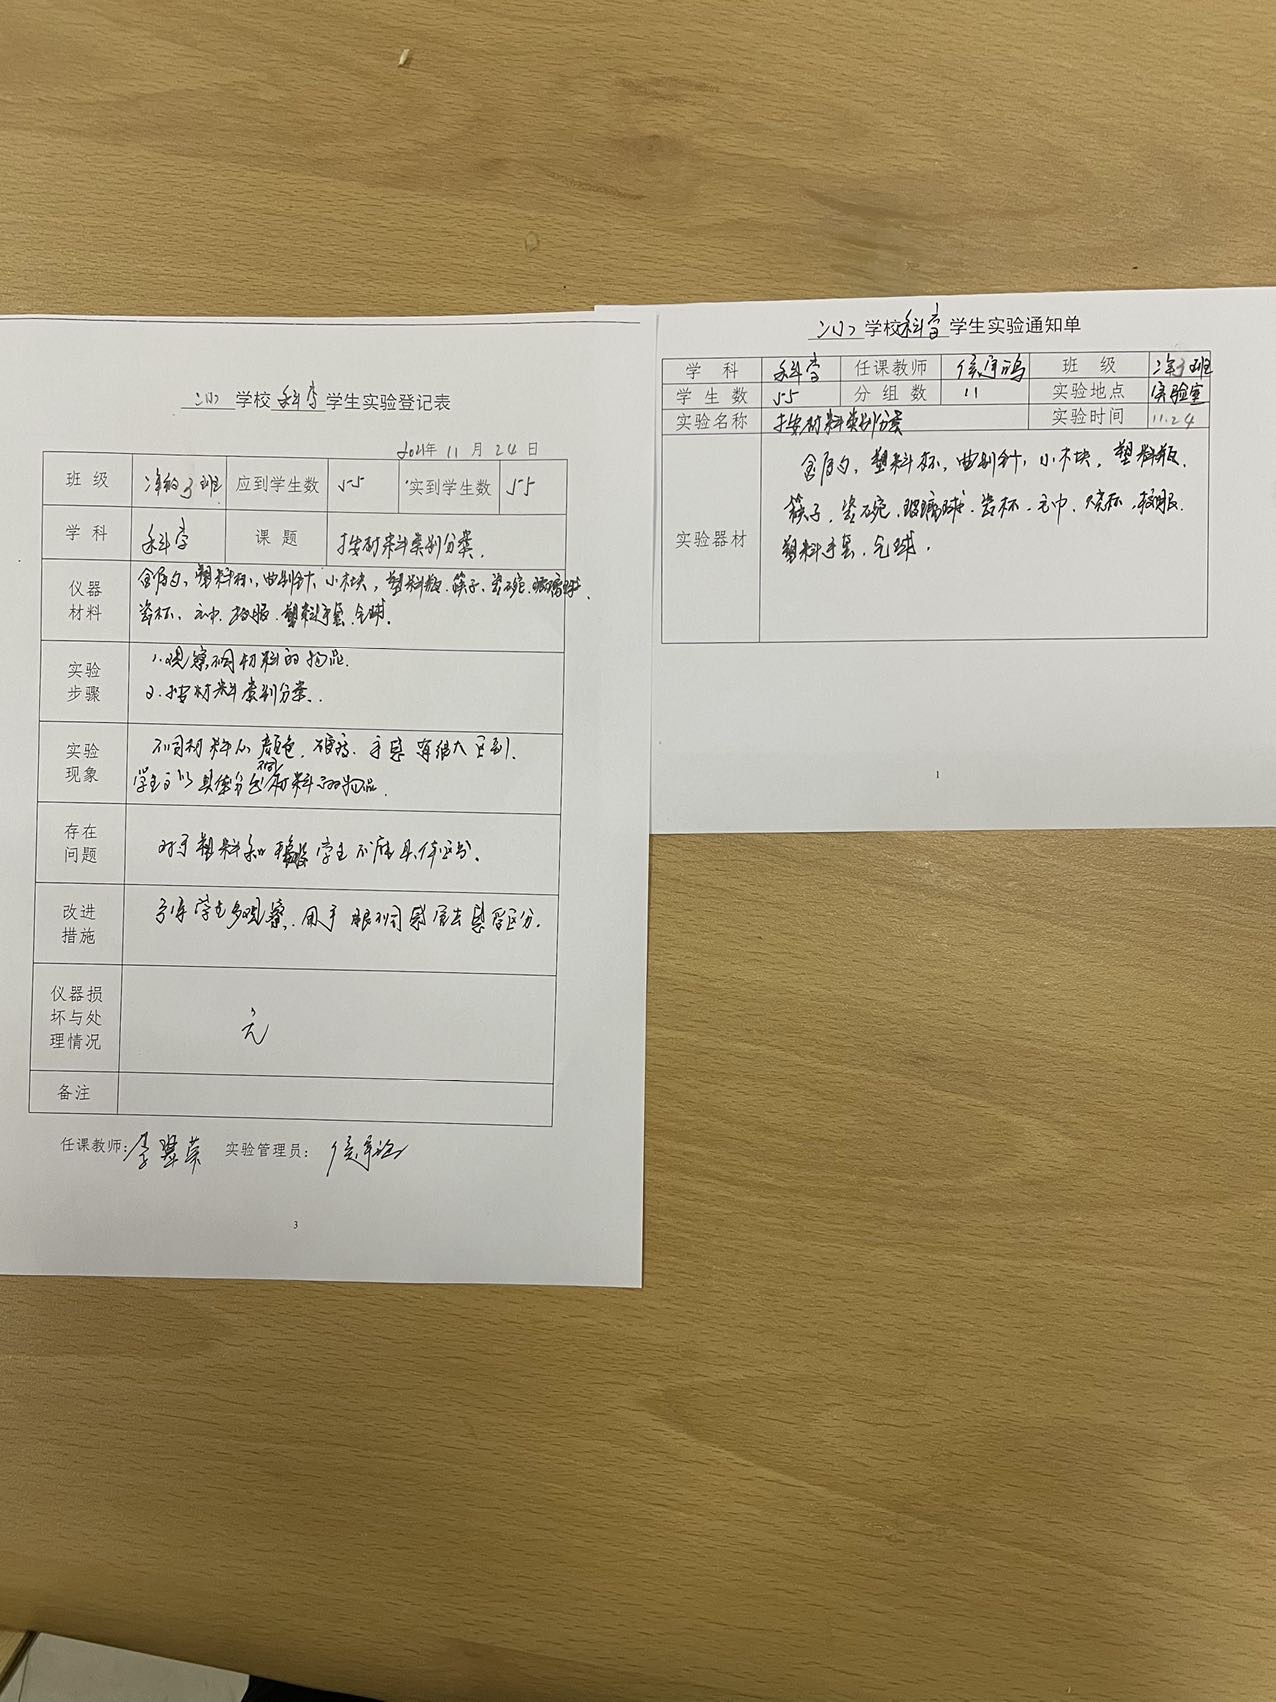 学校科学学生实验登记表
2021年 11 月 24 日
班 级 3班 应到学生数 55 实到学生数 55
学 科 科学 课 题 按材料类别分类.
仪器
材料
金属勺, 塑料杯, 曲别针, 小木块, 塑料瓶. 筷子, 瓷碗. 玻璃球.
瓷杯, 毛巾, 校服. 塑料手套. 气球.
实验
步骤
1. 观察不同材料的物品.
2. 按材料类别分类.
实验
现象
不同材料的颜色, 硬度, 手感有很大区别.
学生可以具体分 不同材料的物品.
存在
问题
对于塑料和 学生不能具体区分.
改进
措施
引导学生多观察, 用手 感 区分.
仪器损
坏与处
理情况
无
备注
任课教师: 实验管理员:
3
学校科学学生实验通知单
学 科 科学 任课教师 班 级 3班
学 生 数 55 分 组 数 11 实验地点 实验室
实验名称 按材料类别分类 实验时间 11.24
实验器材
金属勺, 塑料杯, 曲别针, 小木块, 塑料瓶.
筷子, 瓷碗. 玻璃球. 瓷杯. 毛巾. 烧杯, 校服.
塑料手套, 气球.
1